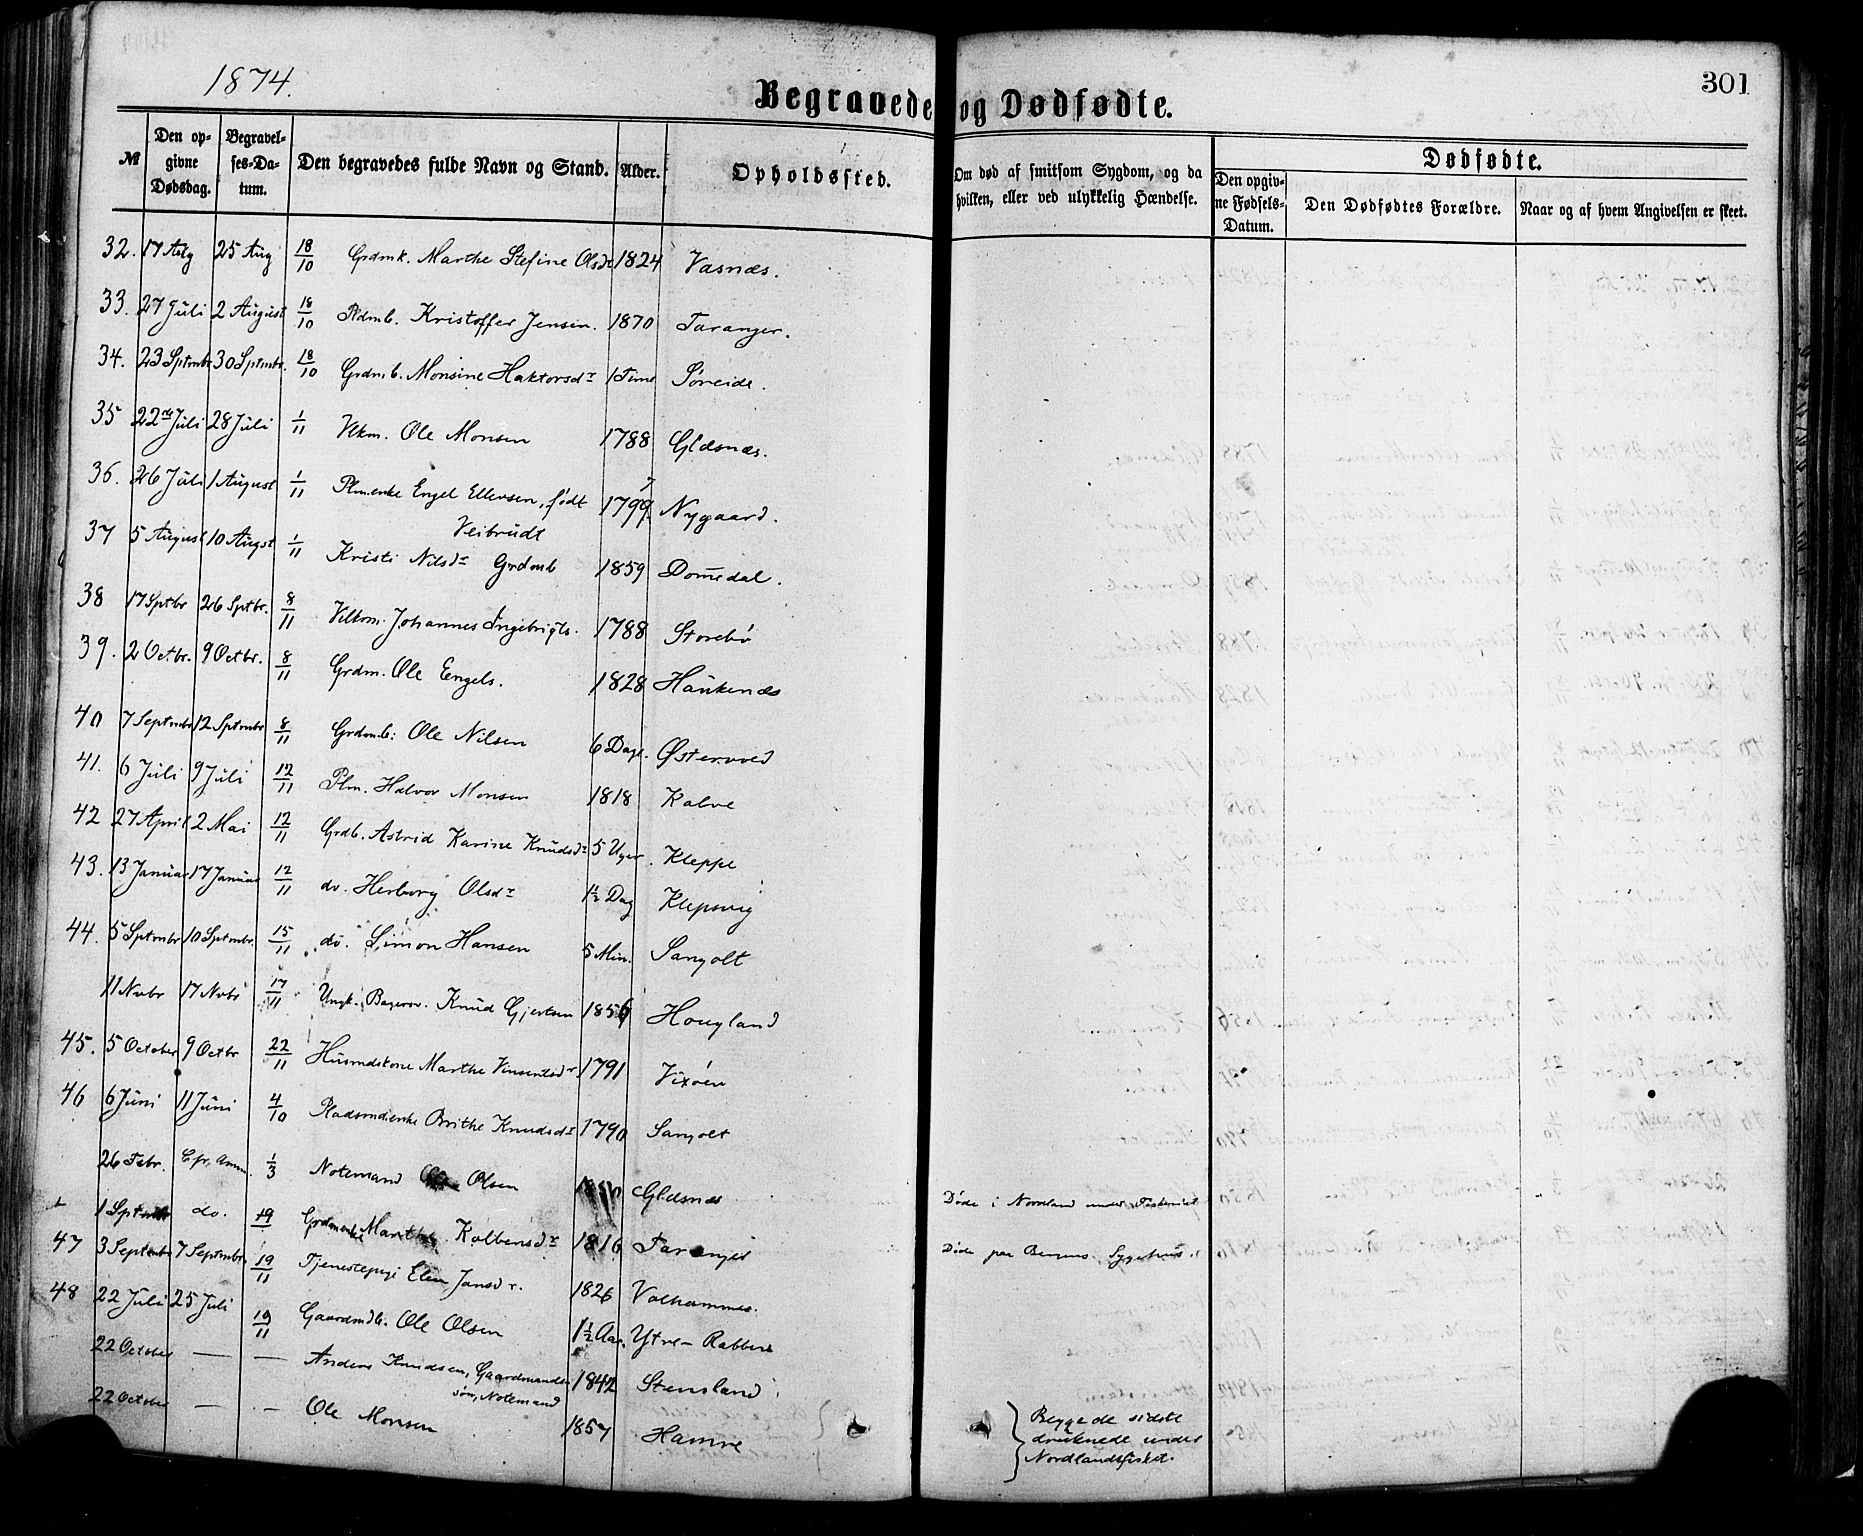 1874.
301
Begravede og Dødfødte.
№
Den opgivne Dødsdag.
Begravelses-Datum.
Den begravedes fulde Navn og Stand.
Alder.
Opholdssted.
Om død af smitsom Sygdom, og da hvilken, eller ved ulykkelig Hændelse.
Dødfødte.
Den opgivne Fødsels-Datum.
Den Dødfødtes Forældre.
Naar og af hvem Angivelsen er skeet.
32. 17 25 Aug 18/10 Grdmk. Marthe Stefine Olsdr 1824 Vasnæs.
33. 27 Juli 2 August 18/10 Kristoffer Jensen. 1870 Taranger.
34. 23 Sptmbr 30 Sptmbr. 18/10 Grdmb. Monsine Haktorsdr 1 Time Søreide.
35 22de Juli 28 Juli 1/11 Ole Monsen 1788 Glæsnæs.
36. 26 Juli 1 August 1/11 Plmenke Engel Ellevsen, født 1799 Nygaard.
Veibrudt
37 5 August 10 Augst 1/11 Kristi Nilsdr Grdmb 1859 Domedal.
38 17 Sptbr 26 Sptbr. 8/11 Johannes Ingebrigts. 1788 Storebø
39. 2 Octbr. 9 Octbr. 8/11 Grdm. Ole Engels. 1828 Haukenæs
40 7 Septmbr 12 Sptmbr 8/11 Grdmb: Ole Nilsen 6 Dage. Østervold
41. 6 Juli 9 Juli 12/11 Plm. Halvor Monsen 1818 Kalve
42 27 April 2 Mai 12/11 Grdb. Astrid Karine Knudsdr 5 Uger. Kleppe
43. 13 Januar 17 Januar 12/11 do. Herborg Olsdr 1½ Dag Klepsvig
44. 5 Sptmbr 10 Sptmbr. 15/11 do. Simon Hansen 5 Min. Sangolt
11 Nvbr 17 Nvbr 17/11 Ungk. Knud Gjertsen 1856 Hougland
45. 5 October 9 Octbr 22/11 Husmdskone Marthe Vinsentsdr 1791 Vixøen
46 6 Juni 11 Juni 4/10 Pladsmdenke Brithe Knudsdr 1790 Sangolt
26 Febr. 1/3 Notemand Ole Olsen Glæsnæs Døde i Nordland under Fiskeriet
1 do. 19 Grdmenke Marthe Kolbensdr 1816 Taranger Døde paa Bergens Sygehuus.
47 3 Septmbr 7 Septmbr. 19/11 Tjenestepige Elen Jansdr. 1826 Valhammer.
48 22 Juli 25 Juli 19/11 Gaardmdb. Ole Olsen 1½ Aar. Ytre-Rabben
22 October — — Anders Knudsen, Gaardmands 1842 Stensland
søn, Notemand
22 October — — Ole Monsen 1857 Hamre
Begge de sidste
druknede under
Nordlandsfisket.